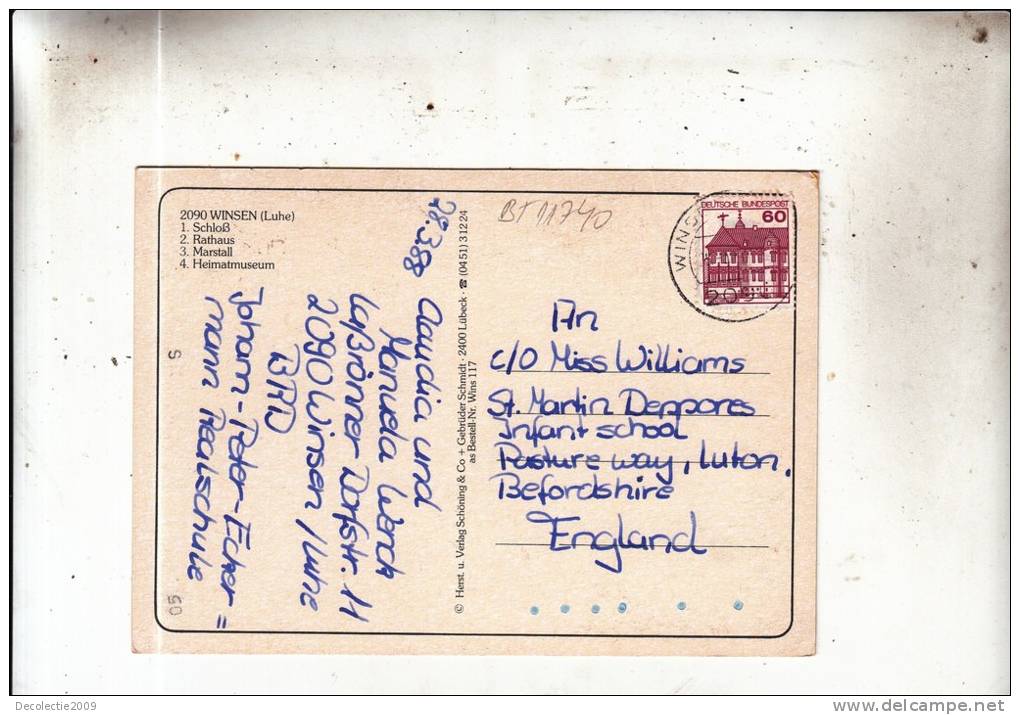 2090 WINSEN (Luhe)
1. Schloß
2. Rathaus
3. Marstall
4. Heimatmuseum
28.3.88
Claudia und
Manuela Werck
Laßrönner Dorfstr. 11
2090 Winsen / Luhe
BRD
Johann-Peter-Ecker=
mann Realschule
S
05
© Herst. u. Verlag Schöning & Co + Gebrüder Schmidt · 2400 Lübeck · ☎ (0451) 3 12 24
as Bestell-Nr. Wins 117
BT 11740
DEUTSCHE BUNDESPOST
60
WINS
209
An
c/o Miss Williams
St. Martin Deppores
Infant school
Pasture way, Luton,
Befordshire
England
Decolectie2009
www.delcampe.net